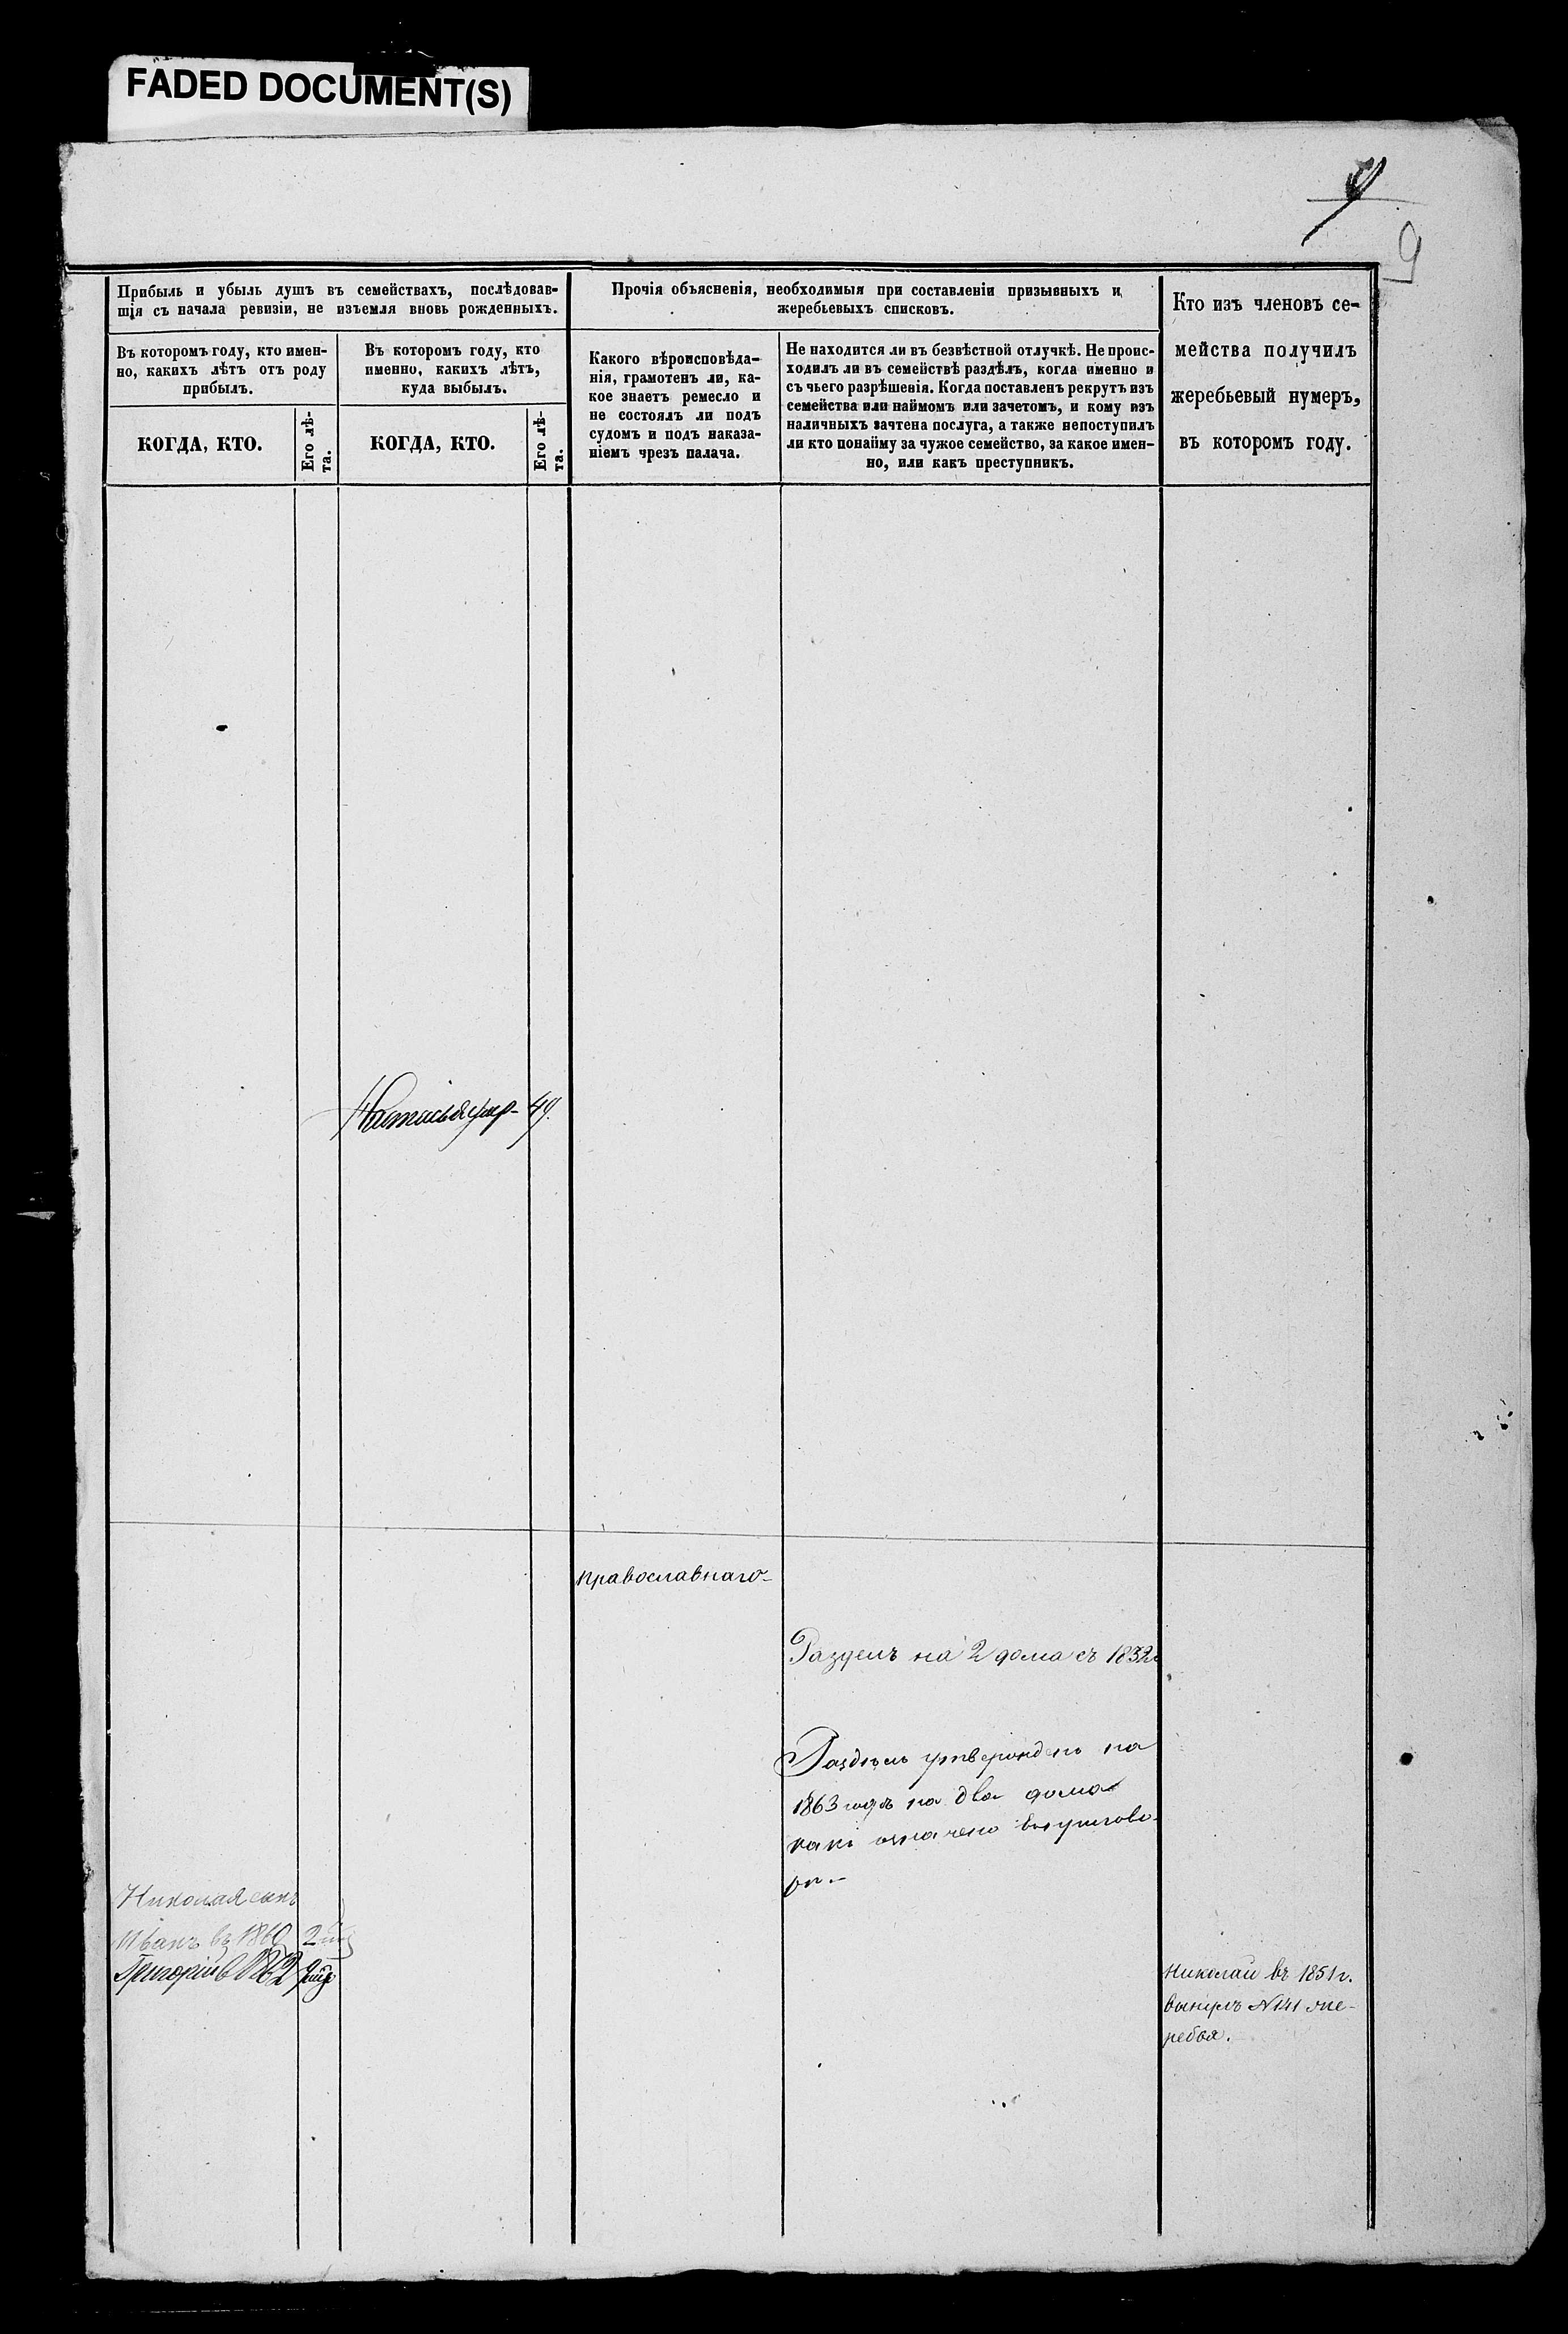 FADED DOCUMENT(S)
9
Прибыль и убыль душъ въ семействахъ, послѣдовав-
шія съ начала ревизіи, не изъемля вновь рожденныхъ.
Въ которомъ году, кто имен-
но, какихъ лѣтъ отъ роду
прибылъ.
КОГДА, КТО.
Его лѣ-
та.
Въ которомъ году, кто
именно, какихъ лѣтъ,
куда выбылъ.
КОГДА, КТО.
Его лѣ-
та.
Прочія объясненія, необходимыя при составленіи призывныхъ и
жеребьевыхъ списковъ.
Какого вѣроисповѣда-
нія, грамотенъ ли, ка-
кое знаетъ ремесло и
не состоялъ ли подъ
судомъ и подъ наказа-
ніемъ чрезъ палача.
Не находится ли въ безвѣстной отлучкѣ. Не проис-
ходилъ ли въ семействѣ раздѣлъ, когда именно и
съ чьего разрѣшенія. Когда поставленъ рекрутъ изъ
семейства или наймомъ или зачетомъ, и кому изъ
наличныхъ зачтена послуга, а также непоступилъ
ли кто понайму за чужое семейство, за какое имен-
но, или какъ преступникъ.
Кто изъ членовъ се-
мейства получилъ
жеребьевый нумеръ,
въ которомъ году.
Настасья умр- 49.
православнаго-
Разделъ на 2 дома съ 1832
Раздѣлъ утвержденъ на
1863 годъ на два дома
какъ означено въ пригово-
рѣ.-
Николая сынъ
Иванъ въ 1860 2
Григорій в 1862
Николай въ 1851 г.
вынулъ №141 же-
ребья.